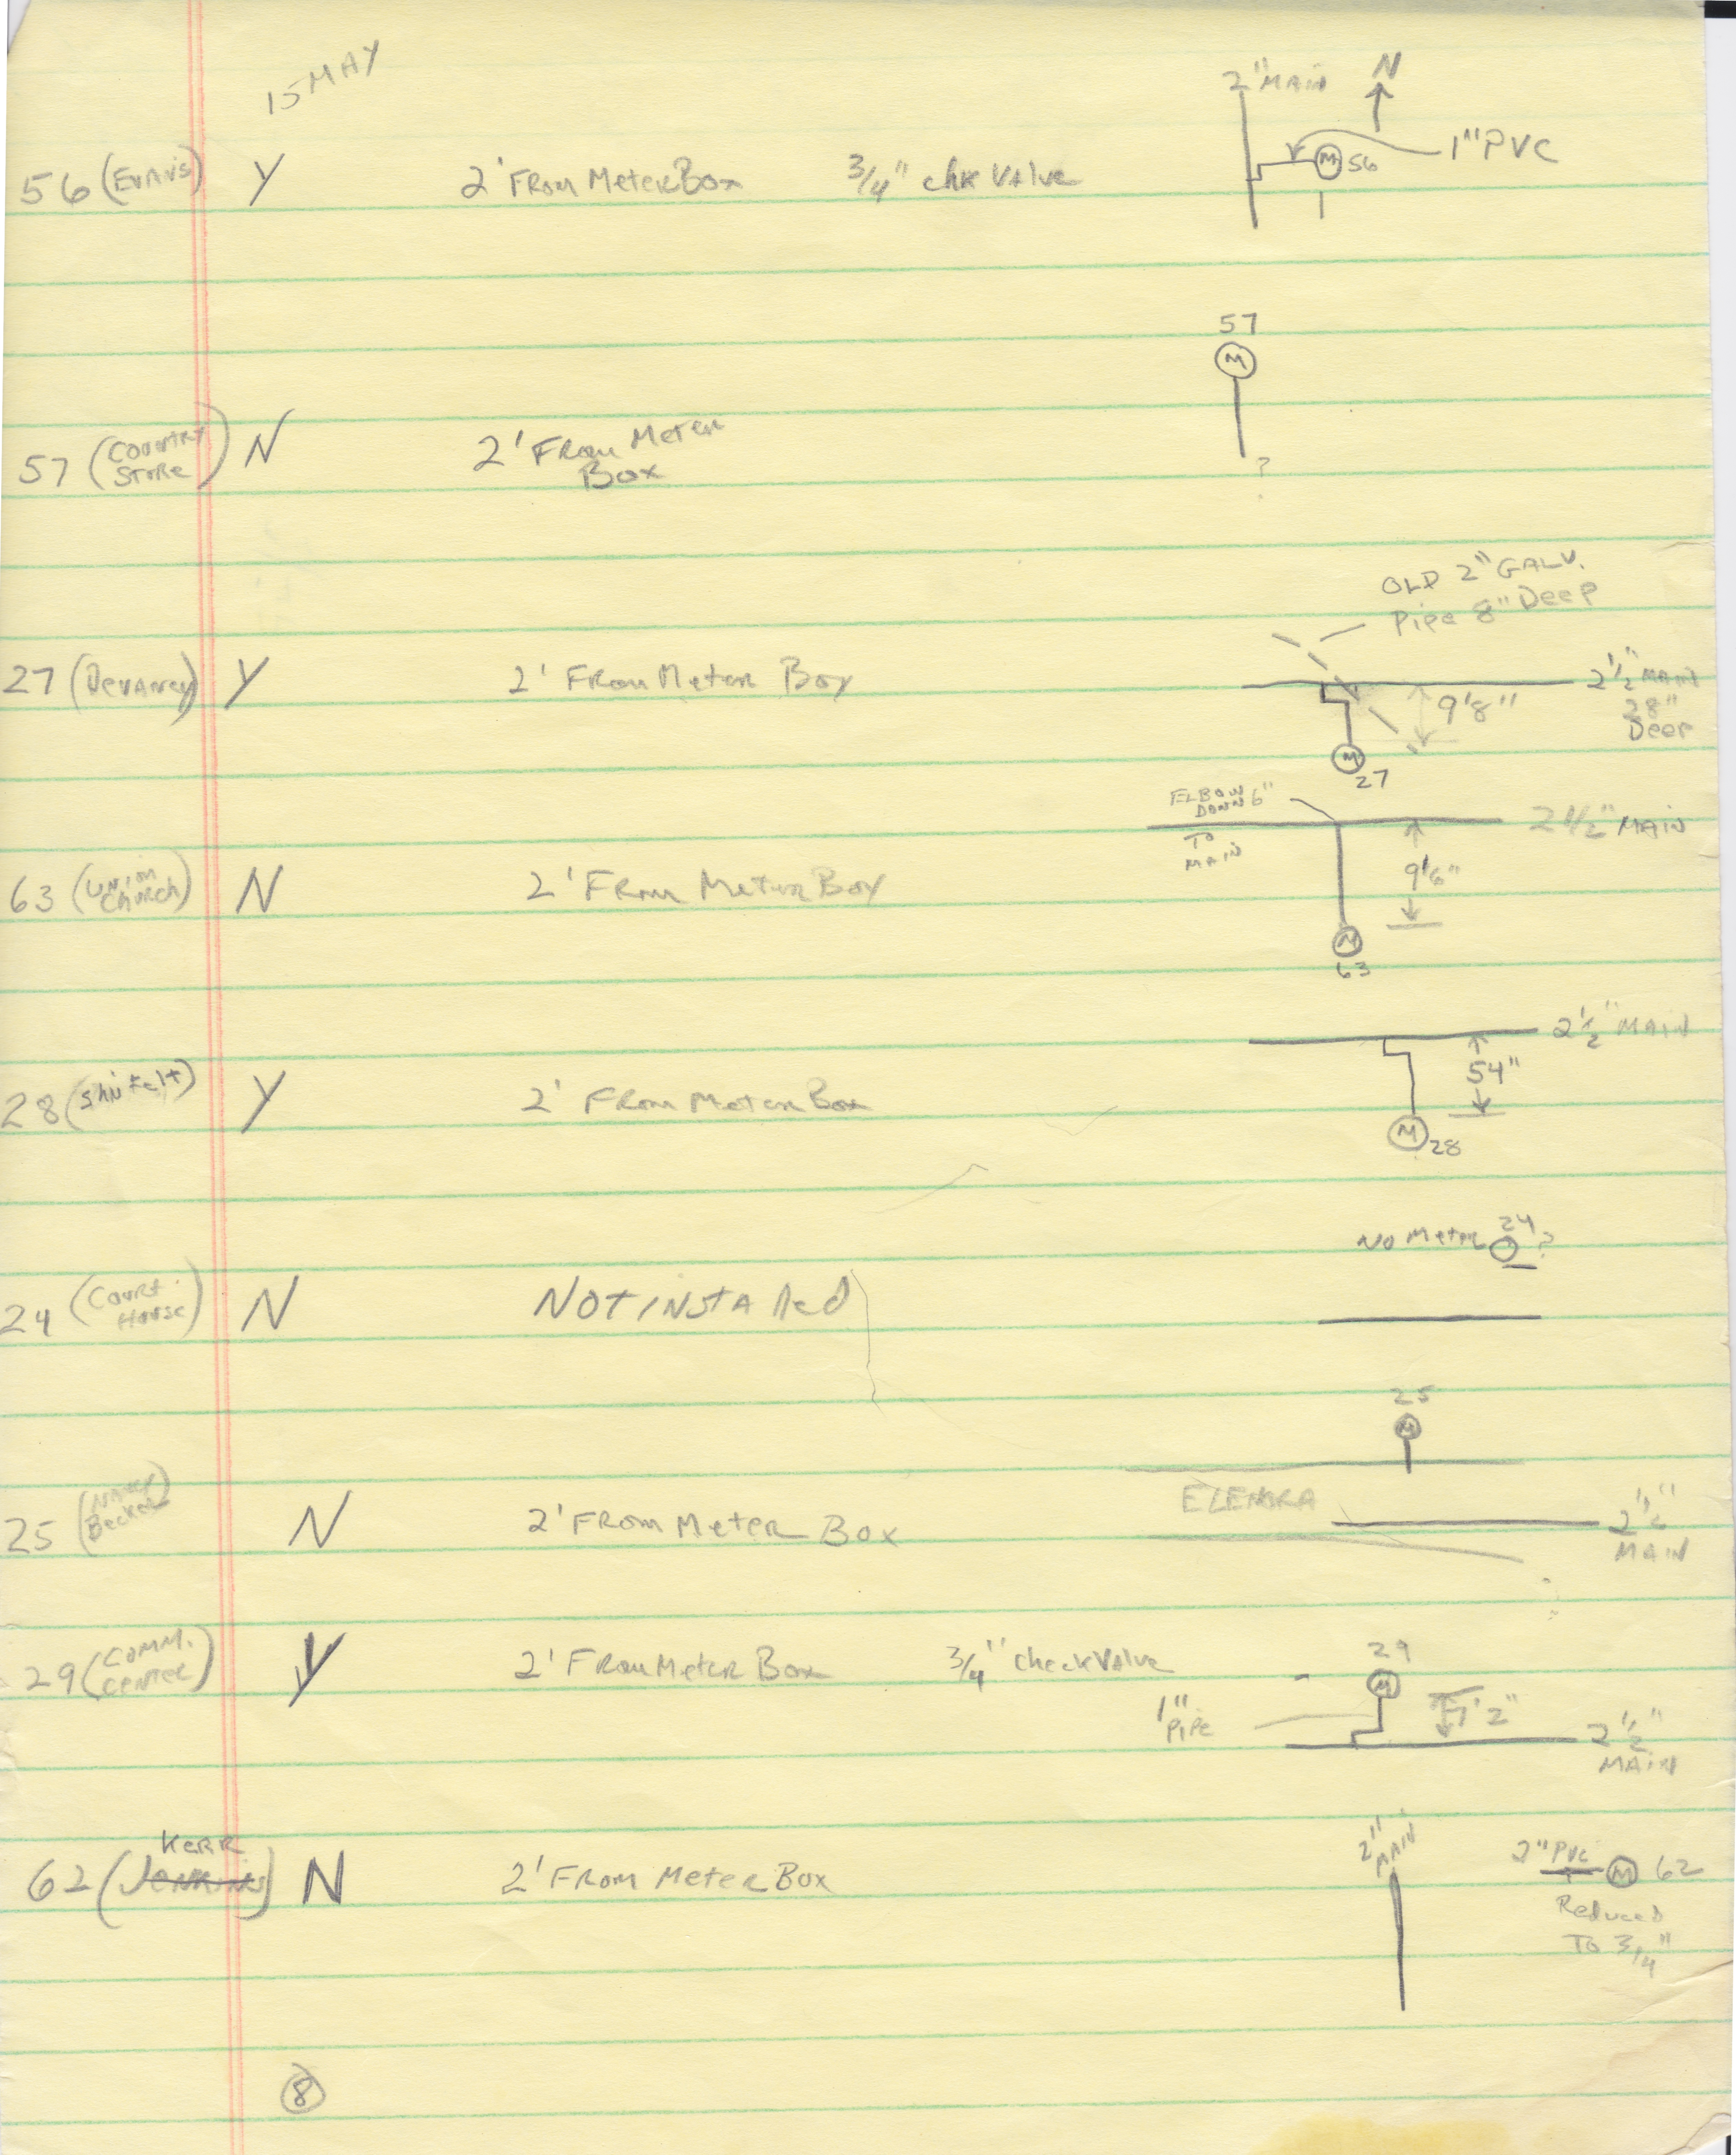 15 MAY
2" MAIN N
56 (EVANS) Y 2' FROM METER BOX 3/4" chk VALVE M 56 1" PVC
57
M
57 (COUNTRY STORE) N 2' FROM METER BOX ?
OLD 2" GALV.
Pipe 8" Deep
27 (DEVANEY) Y 2' FROM METER BOX 9'8" 2 1/2" MAIN
28"
Deep
M
27
ELBOW DOWN 6" TO MAIN 2 1/2" MAIN
63 (UNION CHURCH) N 2' FROM METER BOX 9'6"
M
63
2 1/2" MAIN
28 Y 2' FROM METER BOX 54"
M 28
NO METER 24 ?
24 (COURT HOUSE) N NOT INSTALLED
25
M
25 (NANCY Becker) N 2' FROM METER BOX ELENORA 2 1/2" MAIN
29 (COMM. CENTER) Y 2' FROM METER BOX 3/4" check VALVE 29
M
1" PIPE 7'2" 2 1/2" MAIN
KERR
62 (JENKINS) N 2' FROM METER BOX 2" MAIN 2" PVC M 62
Reduced
TO 3/4"
8